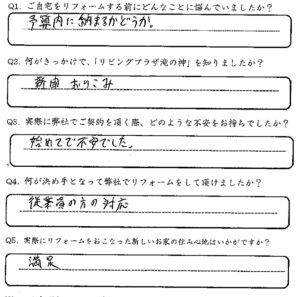 Q1. ご自宅をリフォームする前にどんなことに悩んでいましたか?
予算内に納まるかどうか。
Q2. 何がきっかけで、「リビングプラザ滝の神」を知りましたか?
新聞おりこみ
Q3. 実際に弊社でご契約を頂く際、どのような不安をお持ちでしたか?
始めてで不安でした。
Q4. 何が決め手となって弊社でリフォームをして頂けましたか?
従業員の方の対応
Q5. 実際にリフォームをおこなった新しいお家の住み心地はいかがですか?
満足